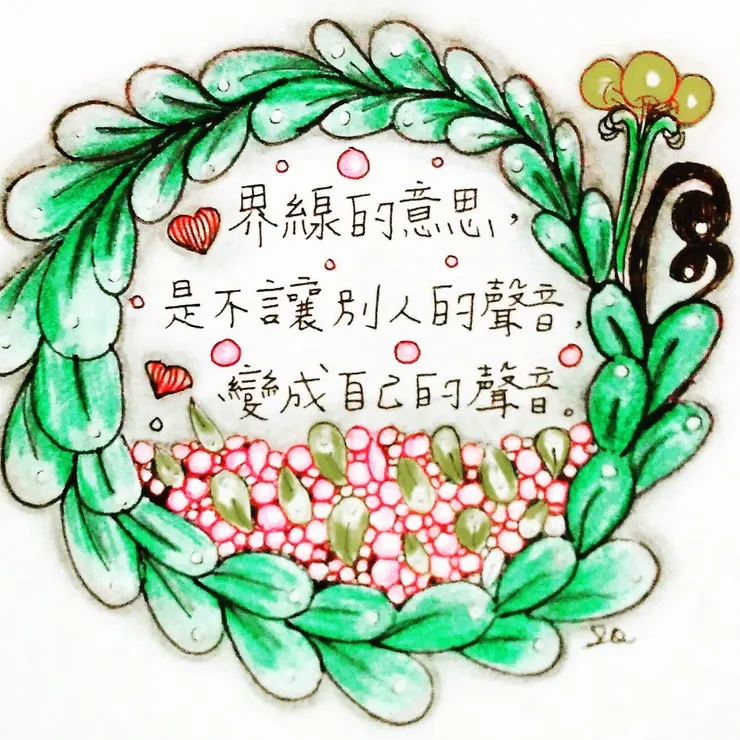 界線的意思，
是不讓別人的聲音，
變成自己的聲音。